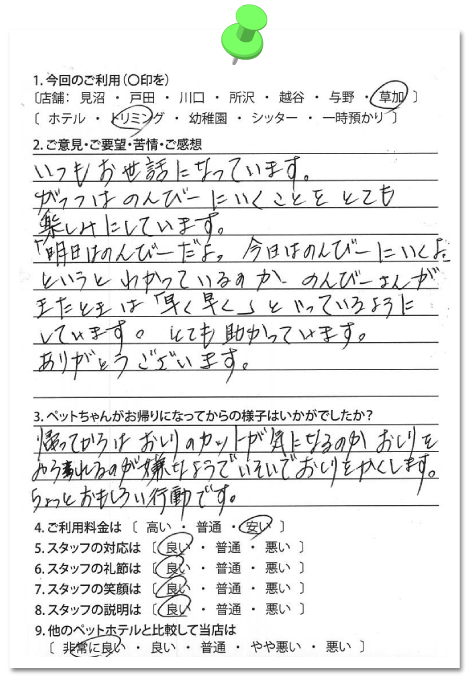 1. 今回のご利用(〇印を)
〔店舗: 見沼 ・ 戸田 ・ 川口 ・ 所沢 ・ 越谷 ・ 与野 ・ 草加 〕
〔 ホテル ・ トリミング ・ 幼稚園 ・ シッター ・ 一時預かり 〕
2. ご意見・ご要望・苦情・ご感想
いつもお世話になっています。
がっつはのんびーにいくことをとても
楽しみにしています。
「明日はのんびーだよ。今日はのんびーにいくよ。
というとわかっているのか、のんびーさんが
きたときは「早く早く」といっているように
しています。とても助かっています。
ありがとうございます。
3. ペットちゃんがお帰りになってからの様子はいかがでしたか?
帰ってからは おしりのカットが気になるのか おしりを
られるのが嫌なようでいそいでおしりをかくします。
ちょっとおもしろい行動です。
4. ご利用料金は 〔 高い ・ 普通 ・ 安い 〕
5. スタッフの対応は 〔 良い ・ 普通 ・ 悪い 〕
6. スタッフの礼節は 〔 良い ・ 普通 ・ 悪い 〕
7. スタッフの笑顔は 〔 良い ・ 普通 ・ 悪い 〕
8. スタッフの説明は 〔 良い ・ 普通 ・ 悪い 〕
9. 他のペットホテルと比較して当店は
〔 非常に良い ・ 良い ・ 普通 ・ やや悪い ・ 悪い 〕